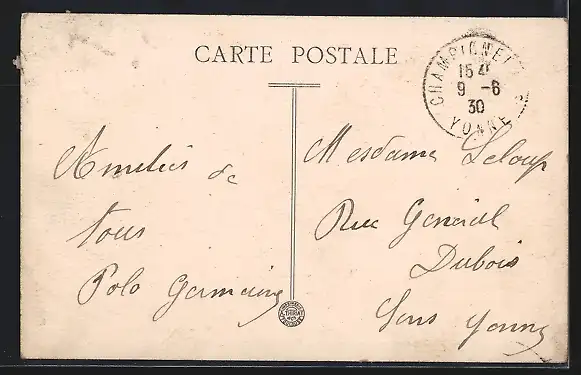 CARTE POSTALE
CHAMPIGNE
15 4
9 -6
30
YONNE
Amitiés de
tous
Polo Germaine
Mesdame Leloup
Rue Général
Dubois
Sens Yonne